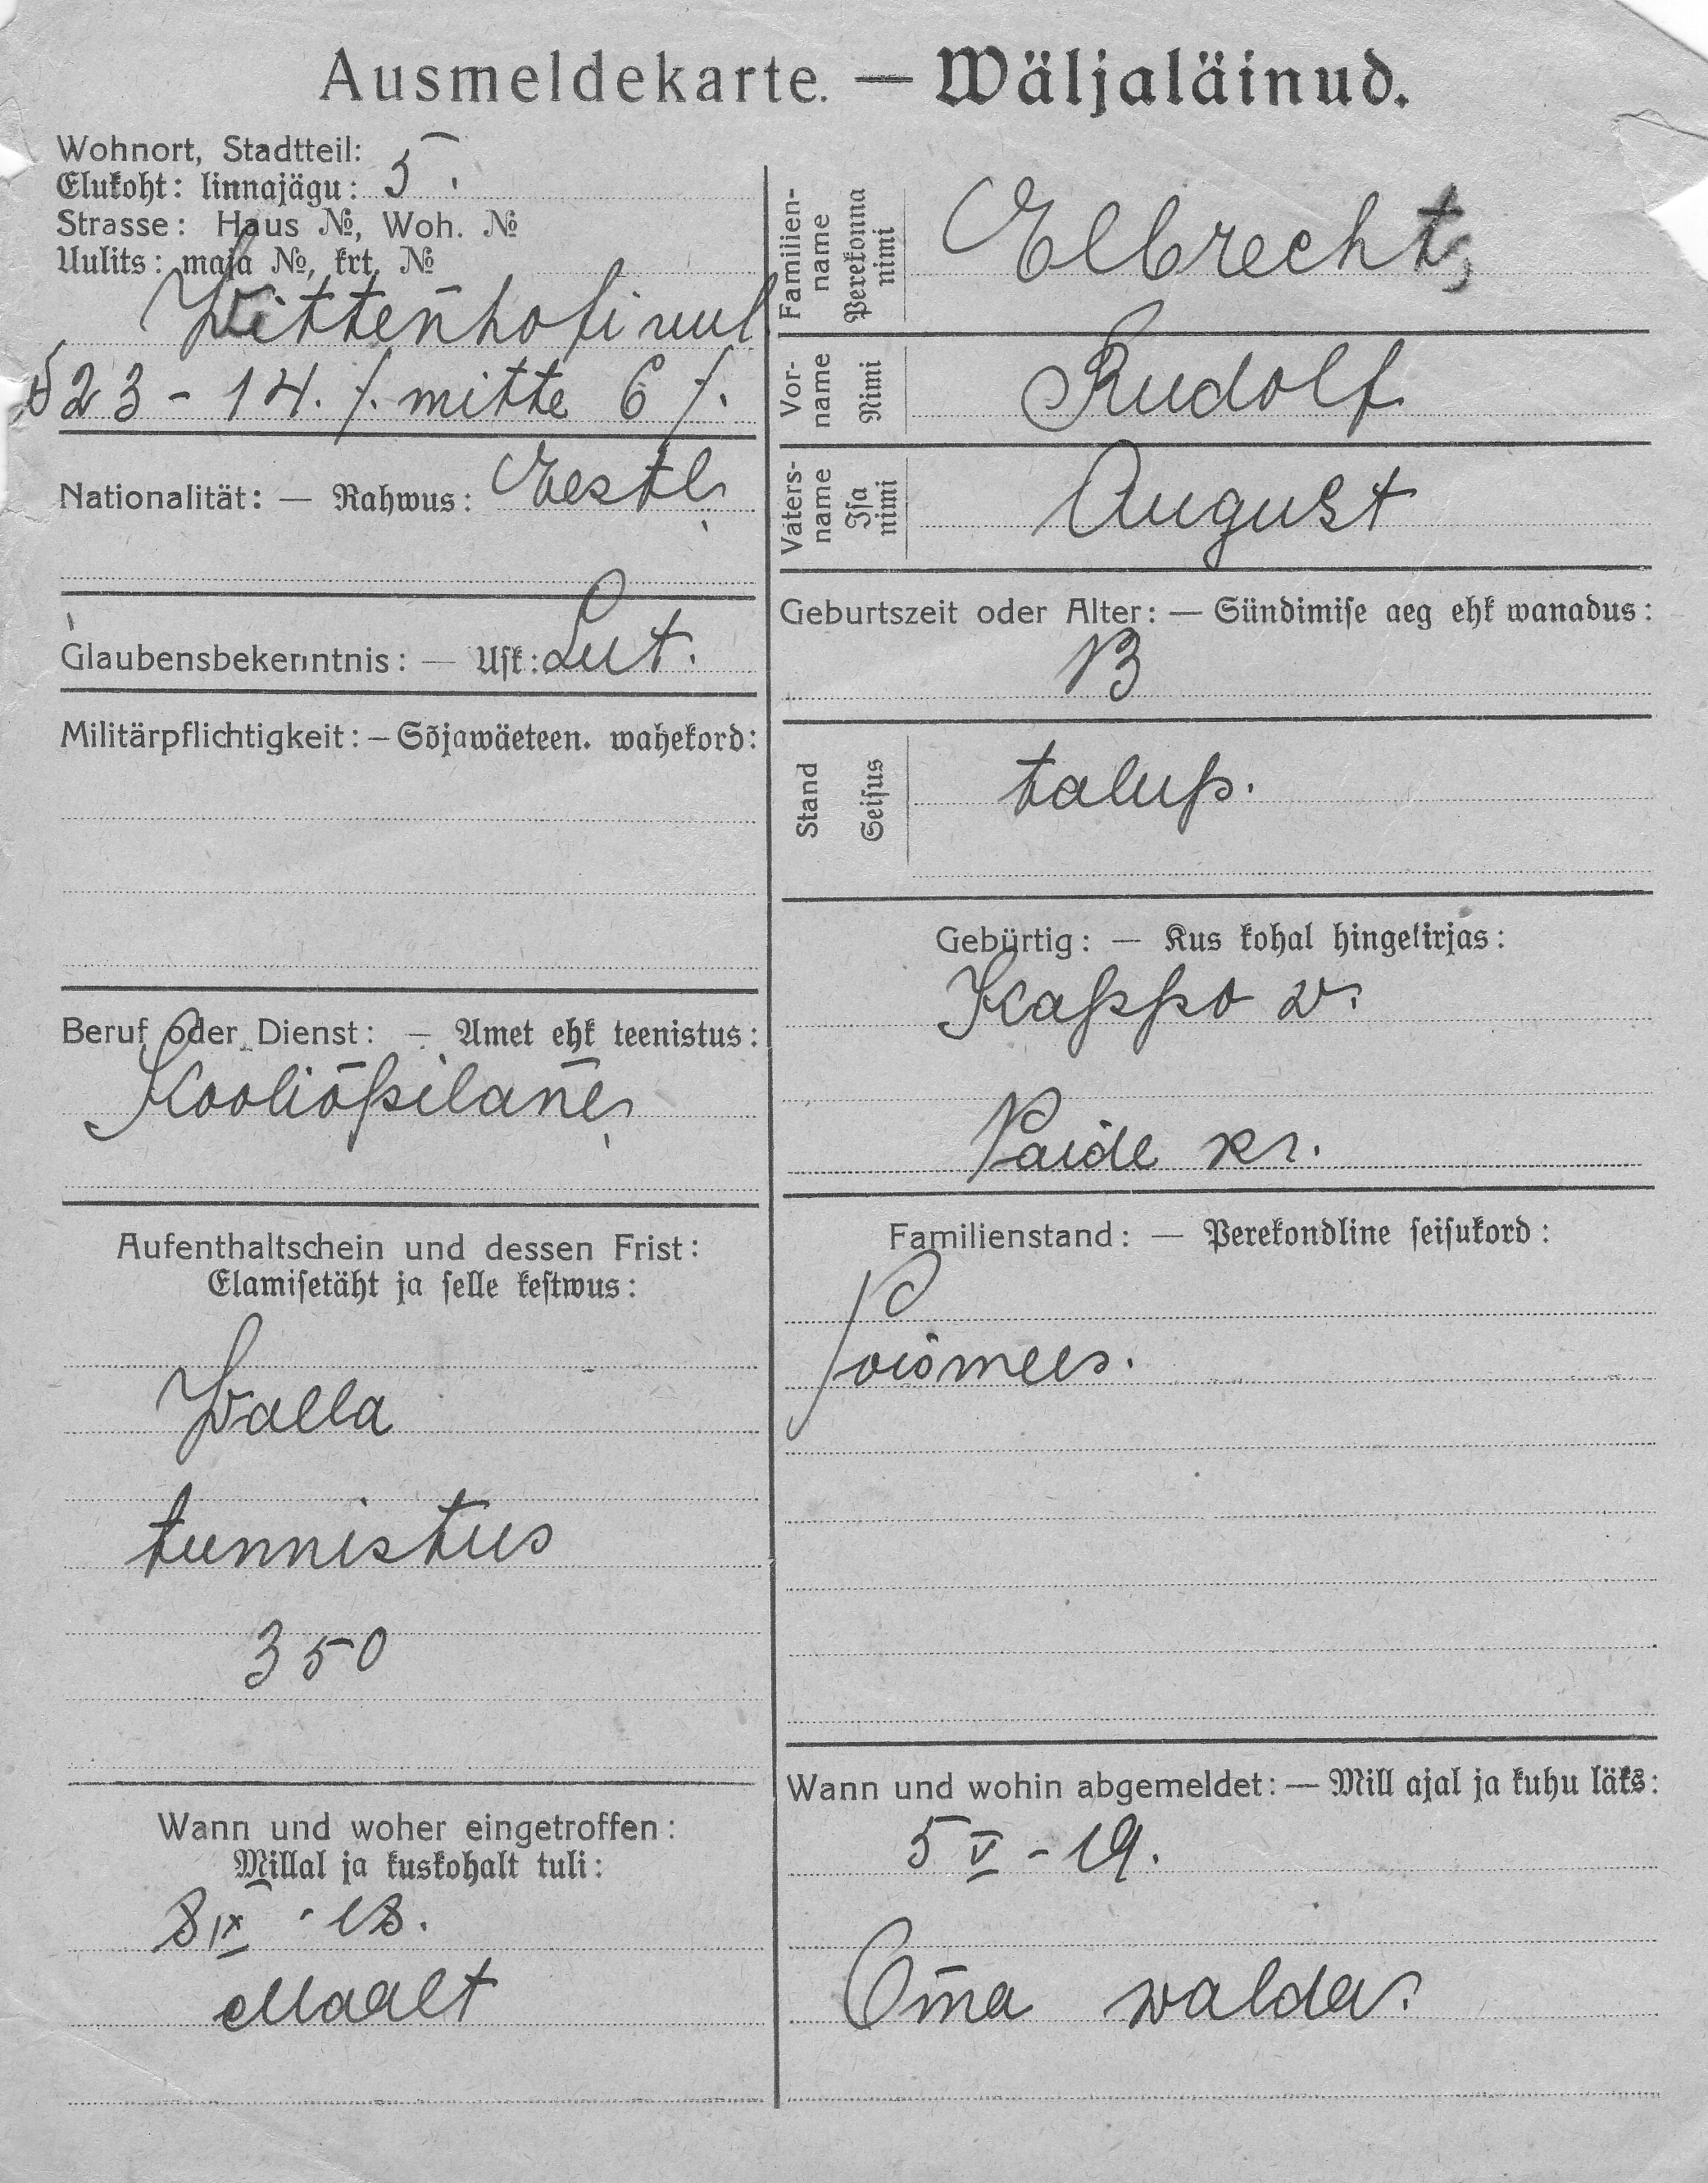 Ausmeldekarte. — Wäljaläinud.
Wohnort, Stadtteil:
Elukoht: linnajägu: 5.
Strasse: Haus №, Woh. №
Uulits: maja №, krt, №
Wittenhofi uul
23 - 14. /. mitte 6 /.
Nationalität: — Rahwus: Eestl.
Glaubensbekenntnis: — Usk: Lut.
Militärpflichtigkeit: — Sõjawäeteen. wahekord:
Beruf oder Dienst: — Amet ehk teenistus:
Kooliõpilane
Aufenthaltschein und dessen Frist:
Elamisetäht ja selle kestwus:
Walla
tunnistus
350
Wann und woher eingetroffen:
Millal ja kuskohalt tuli:
8 IX - 18.
Maalt
Familien-name Perekonna nimi Elbrecht
Vor-name Nimi Rudolf
Vaters-name Isa nimi August
Geburtszeit oder Alter: — Sündimise aeg ehk wanadus:
13
Stand Seisus talup.
Gebürtig: — Kus kohal hingekirjas:
Kappo w.
Paide kr.
Familienstand: — Perekondline seisukord:
Poismees.
Wann und wohin abgemeldet: — Mill ajal ja kuhu läks:
5 V - 19.
Oma walda.